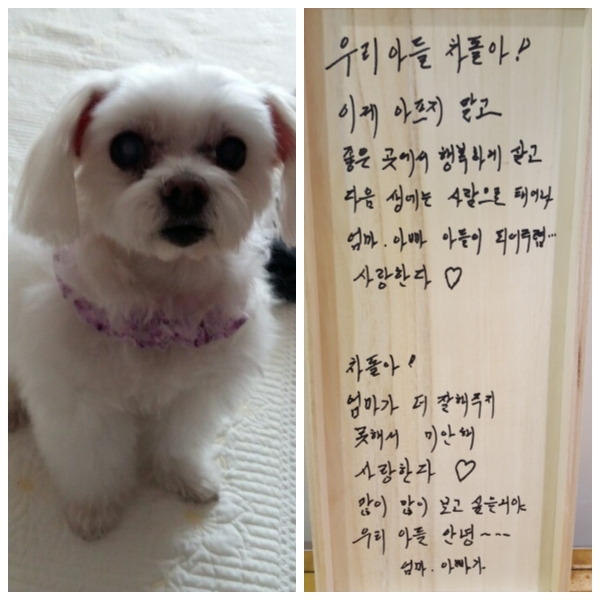 우리 아들 차돌아!
이제 아프지 말고
좋은 곳에서 행복하게 살고
다음 생에는 사람으로 태어나
엄마.아빠 아들이 되어주렴...
사랑한다 ♡
차돌아!
엄마가 더 잘해주지
못해서 미안해
사랑한다 ♡
많이 많이 보고 싶을거야
우리 아들 안녕~~~
엄마.아빠가